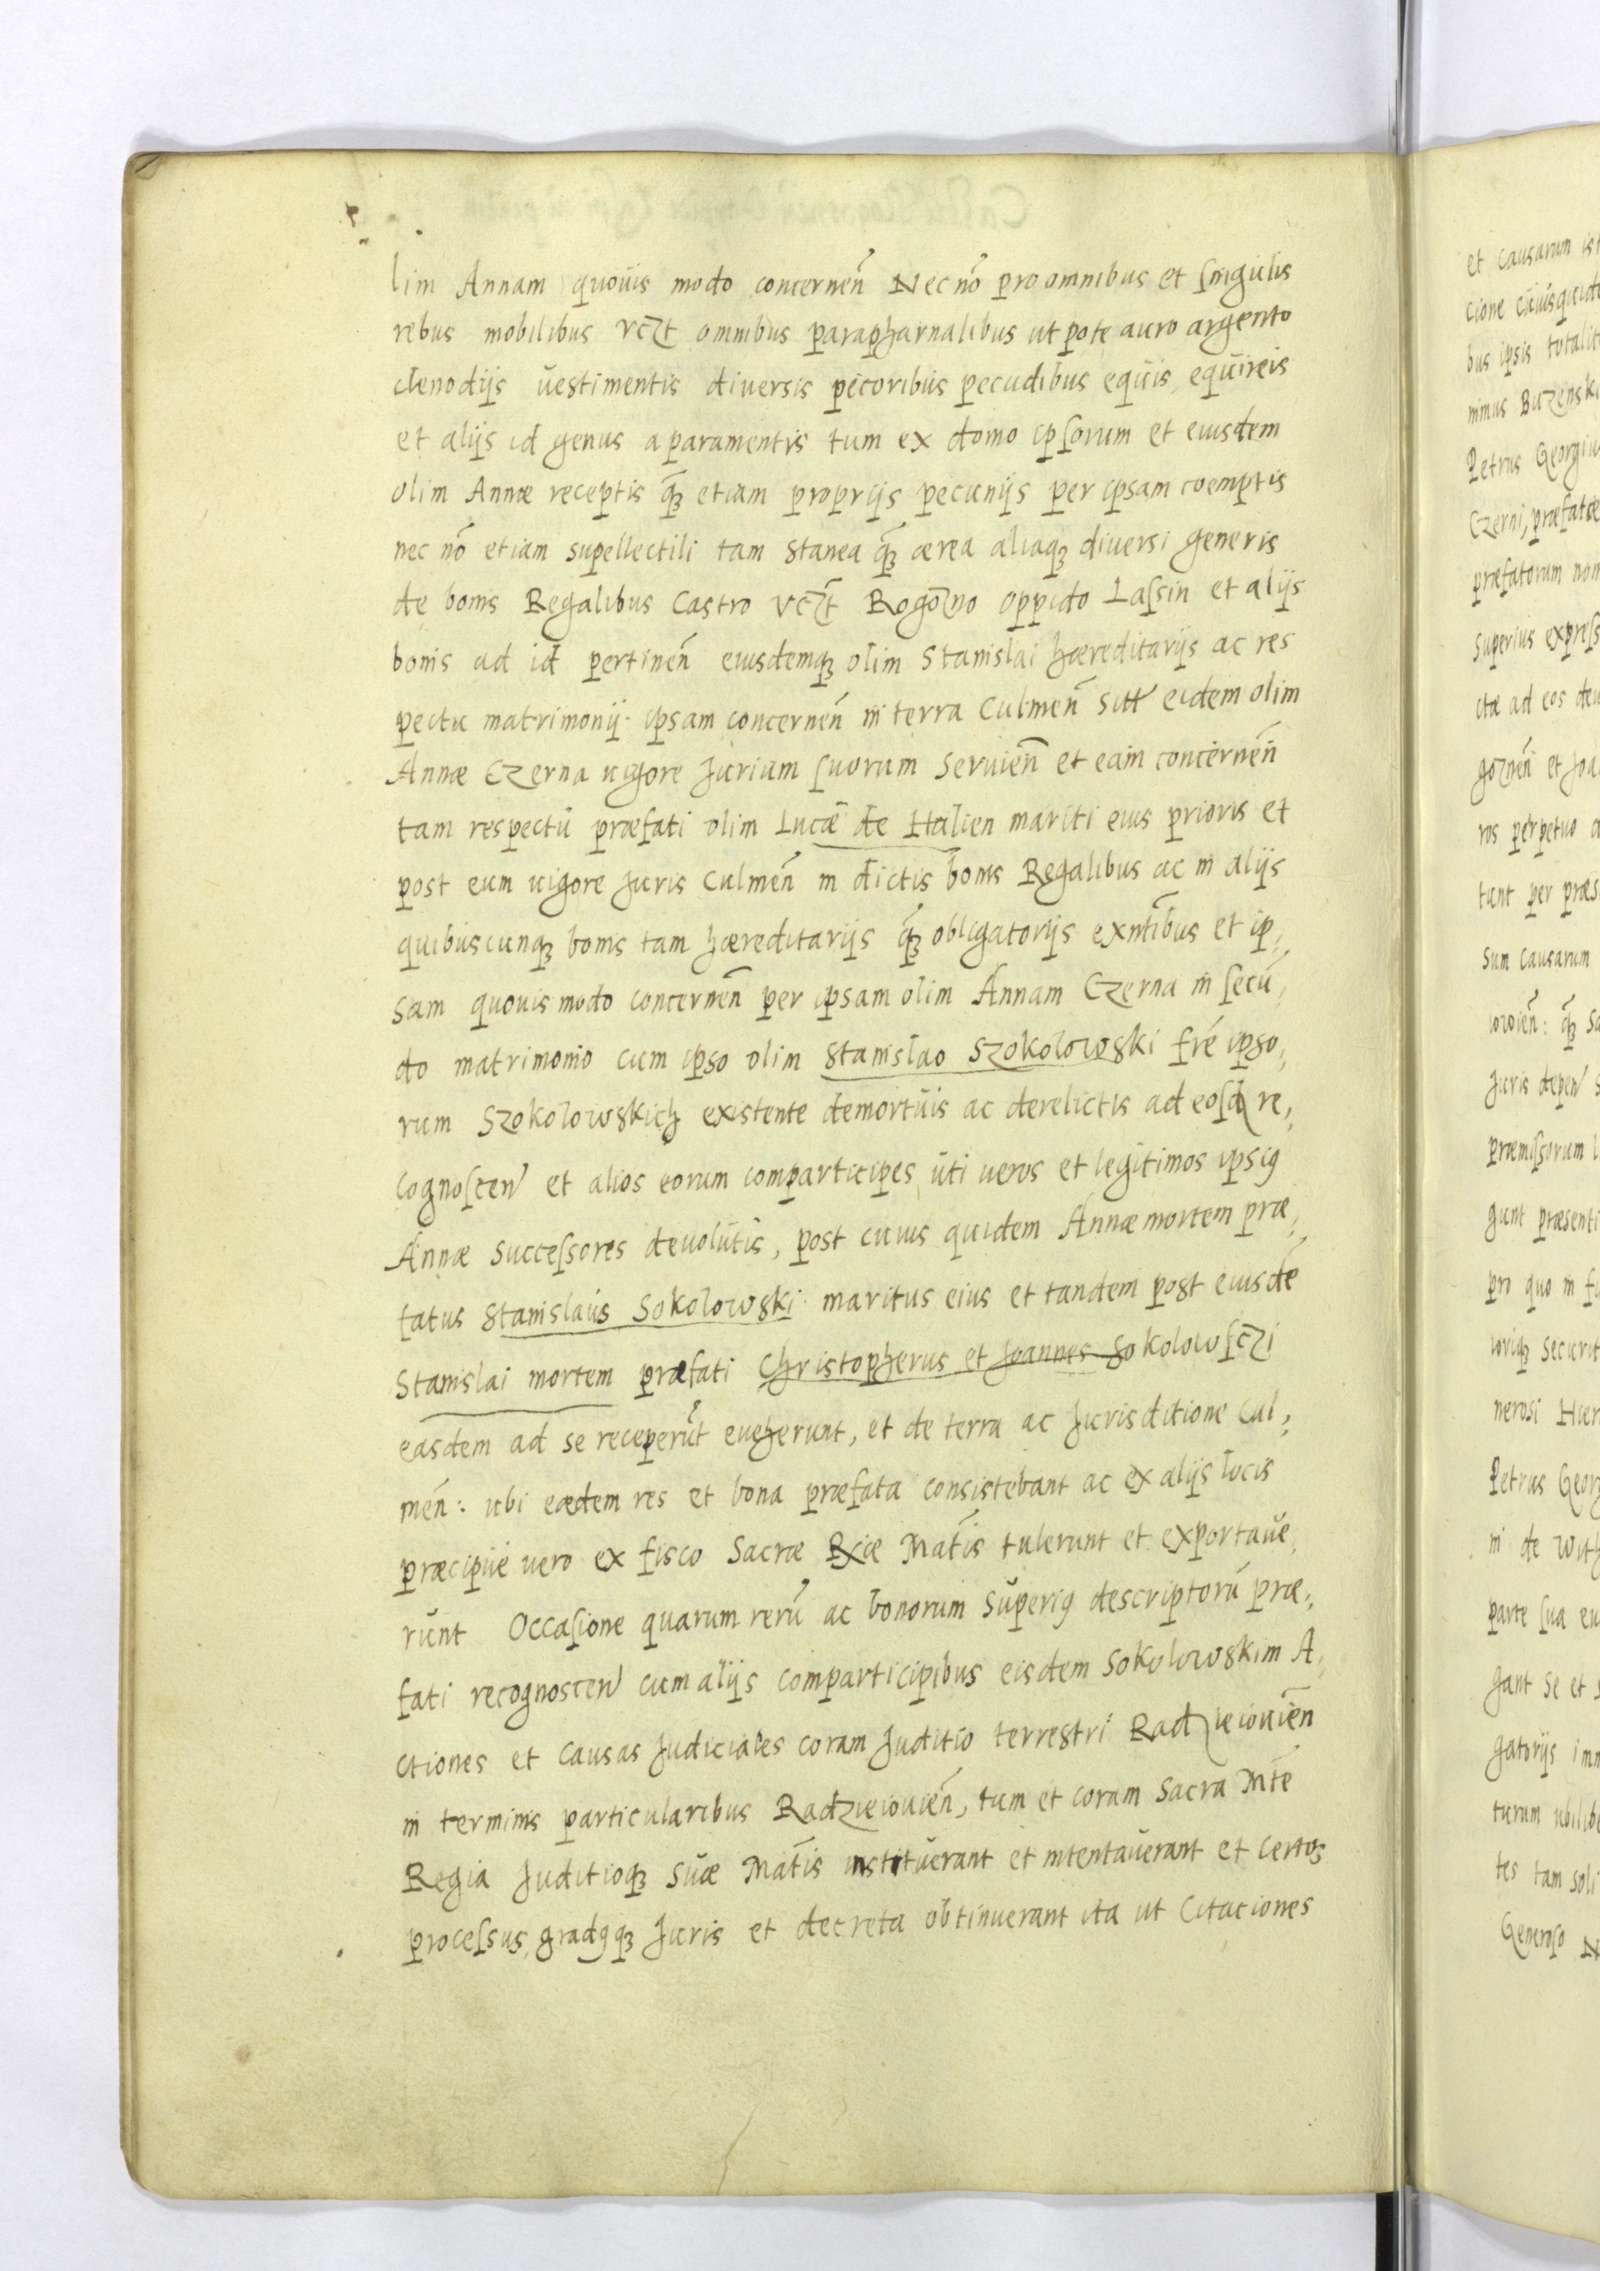 lim Annam quouis modo concernen̄ Nec nō pro omnibus et singulis
rebus mobilibus vczt omnibus parapharnalibus ut pote auro argento
clenodijs vestimentis diuersis pecoribus pecudibus equis equireis
et alijs id genus aparamentis tum ex domo ipsorum et eiusdem
olim Annæ receptis q̄ꝫ etiam proprijs pecunijs per ipsam coemptis
nec nō etiam supellectili tam stanea q̄ꝫ ærea aliaqꝫ diuersi generis
de bonis Regalibus Castro vczt Rogozno oppido Lassin et alijs
bonis ad id pertinen̄ eiusdemqꝫ olim Stanislai hæreditarijs ac res
pectu matrimonij ipsam concernen̄ in terra Culmen̄ sitt eidem olim
Annæ Czerna uigore Jurium suorum seruien̄ et eam concernen̄
tam respectu præfati olim Lucæ de Halien mariti eius prioris et
post eum uigore Juris Culmen̄ in dictis bonis Regalibus ac in alijs
quibuscunqꝫ bonis tam hæreditarijs q̄ꝫ obligatorijs exn̄tibus et ip,
sam quouis modo concernen̄ per ipsam olim Annam Czerna in secu,
do matrimonio cum ipso olim Stanislao Szokolowski frē ipso,
rum Szokolowskich existente demortuis ac derelictis ad eosd re,
cognoscen et alios eorum comparticipes uti ueros et legitimos ipsiꝯ
Annæ Successores deuolutis, post cuius quidem Annæ mortem præ,
fatus Stanislaus Sokolowski maritus eius et tandem post eiusdē
Stanislai mortem præfati Christopherus et Joannes Sokolowsczi
easdem ad se receperūt eueherunt, et de terra ac Jurisditione Cul,
men̄: ubi eædem res et bona præfata consistebant ac ex alijs locis
præcipue uero ex fisco Sacræ Rxiæ Mat̄is tulerunt et exportaue,
runt Occasione quarum rerū ac bonorum superiꝯ descriptorū præ,
fati recognoscen cum alijs comparticipibus eisdem Sokolowskim A,
ctiones et causas Judiciales coram Juditio terrestri Radzieiouien̄
in terminis particularibus Radzieiouien̄, tum et coram Sacra Mt̄e
Regia Juditioqꝫ Suæ Mat̄is instituerant et intentauerant et certos
processus, gradꝯqꝫ Juris et decreta obtinuerant ita ut Citationes